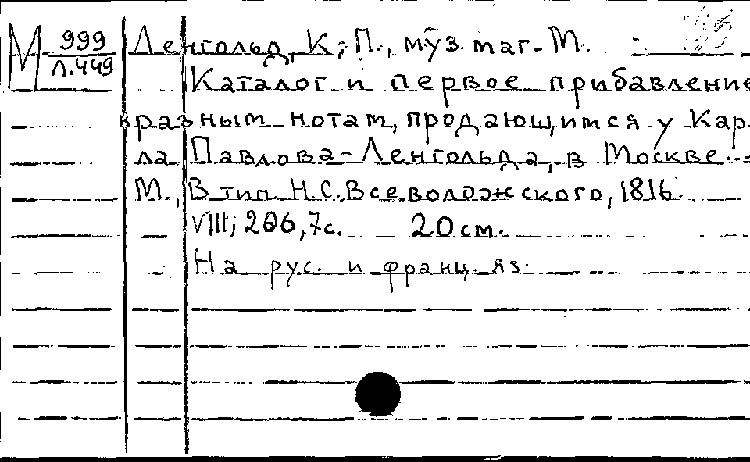 М 999
Л.449
Ленгольд, К. П., муз. маг. М.
Каталог и первое прибавление
разным нотам, продающимся у Кар-
ла Павлова-Ленгольда, в Москве. -
М., В тип. Н.С. Всеволожского, 1816.
VIII; 206, 7с. 20 см.
На рус. и франц. яз.